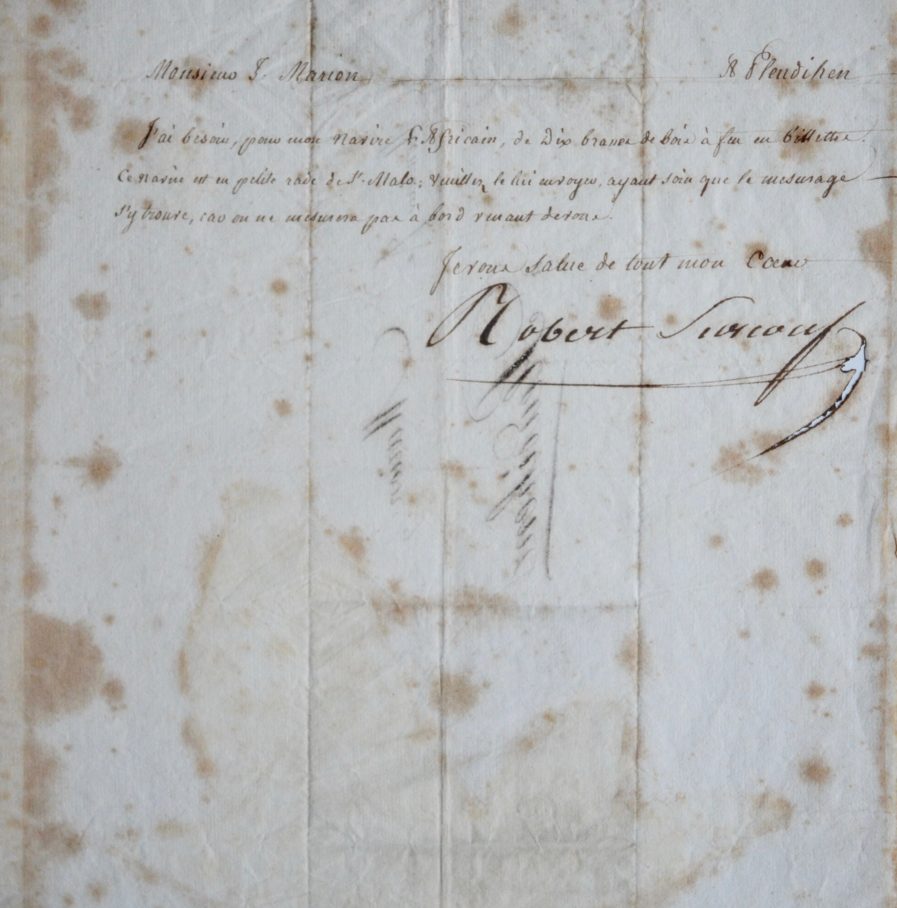 Monsieur F. Marion A Pleudihen
J'ai besoin, pour mon navire L'Africain, de Dix brasses de bois à feu en billette.
Ce navire est en petite rade de St. Malo; veuillez le lui envoyer, ayant soin que le mesurage
s'y trouve, car on ne mesurera pas à bord venant de vous.
Je vous salue de tout mon Coeur
Robert Surcouf